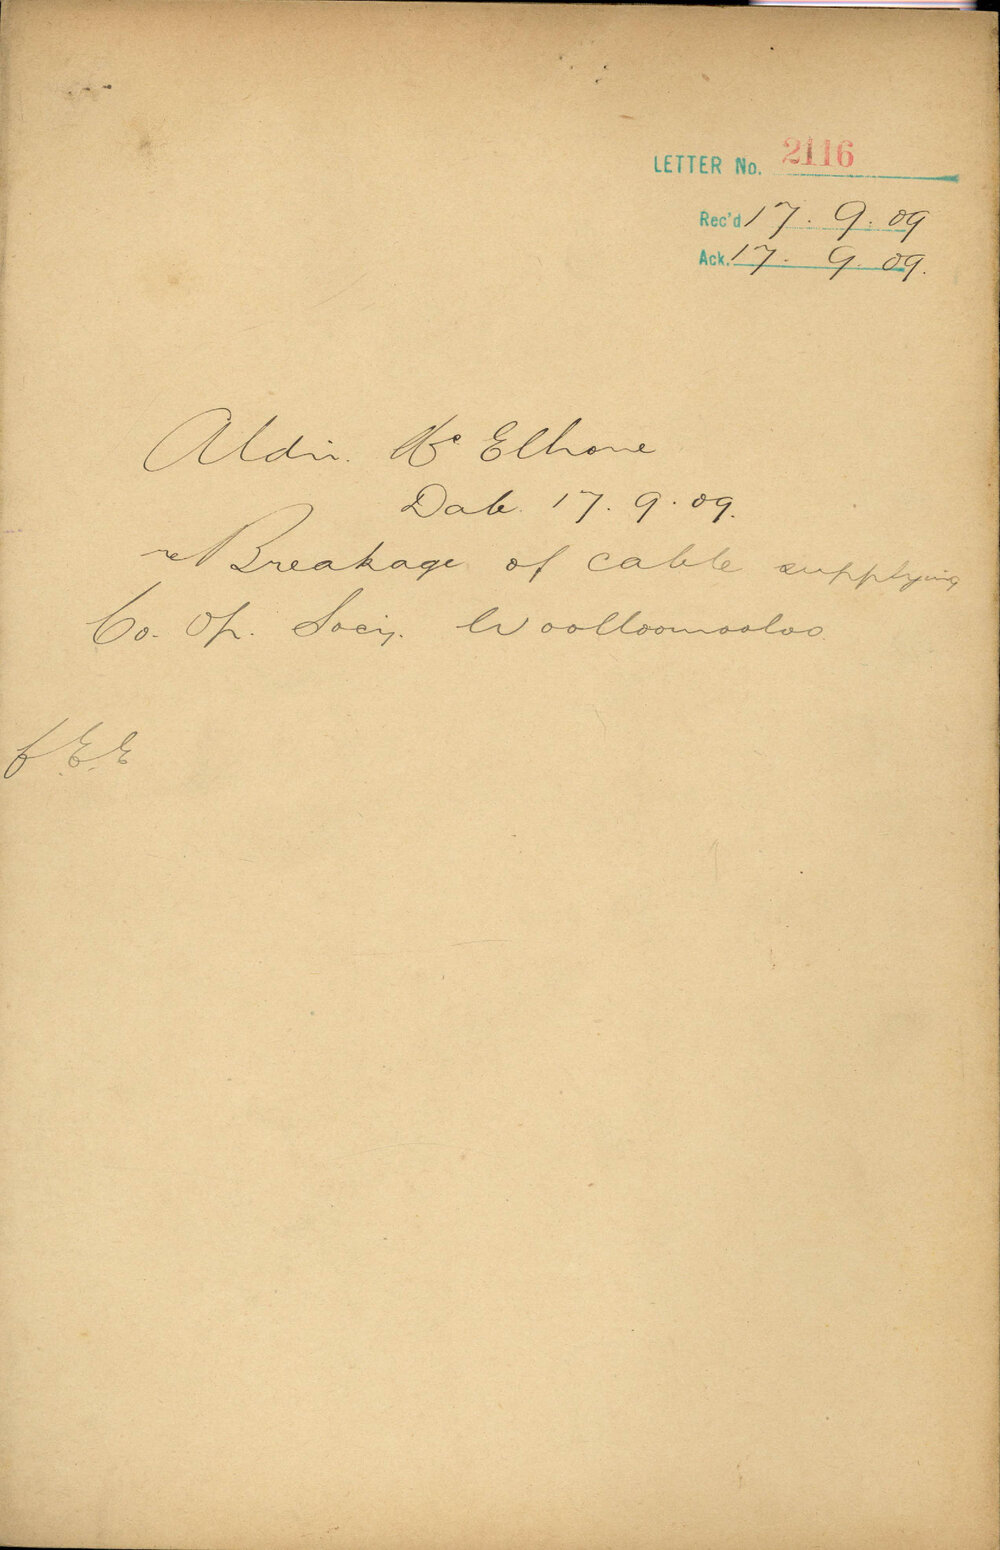 LETTER No. 2116
Rec'd 17. 9. 09
Ack. 17. 9. 09.
Aldn. Mc Elhone
Date. 17. 9. 09.
re Breakage of cable supplying
Co. Op. Socy. Woolloomooloo
E.E